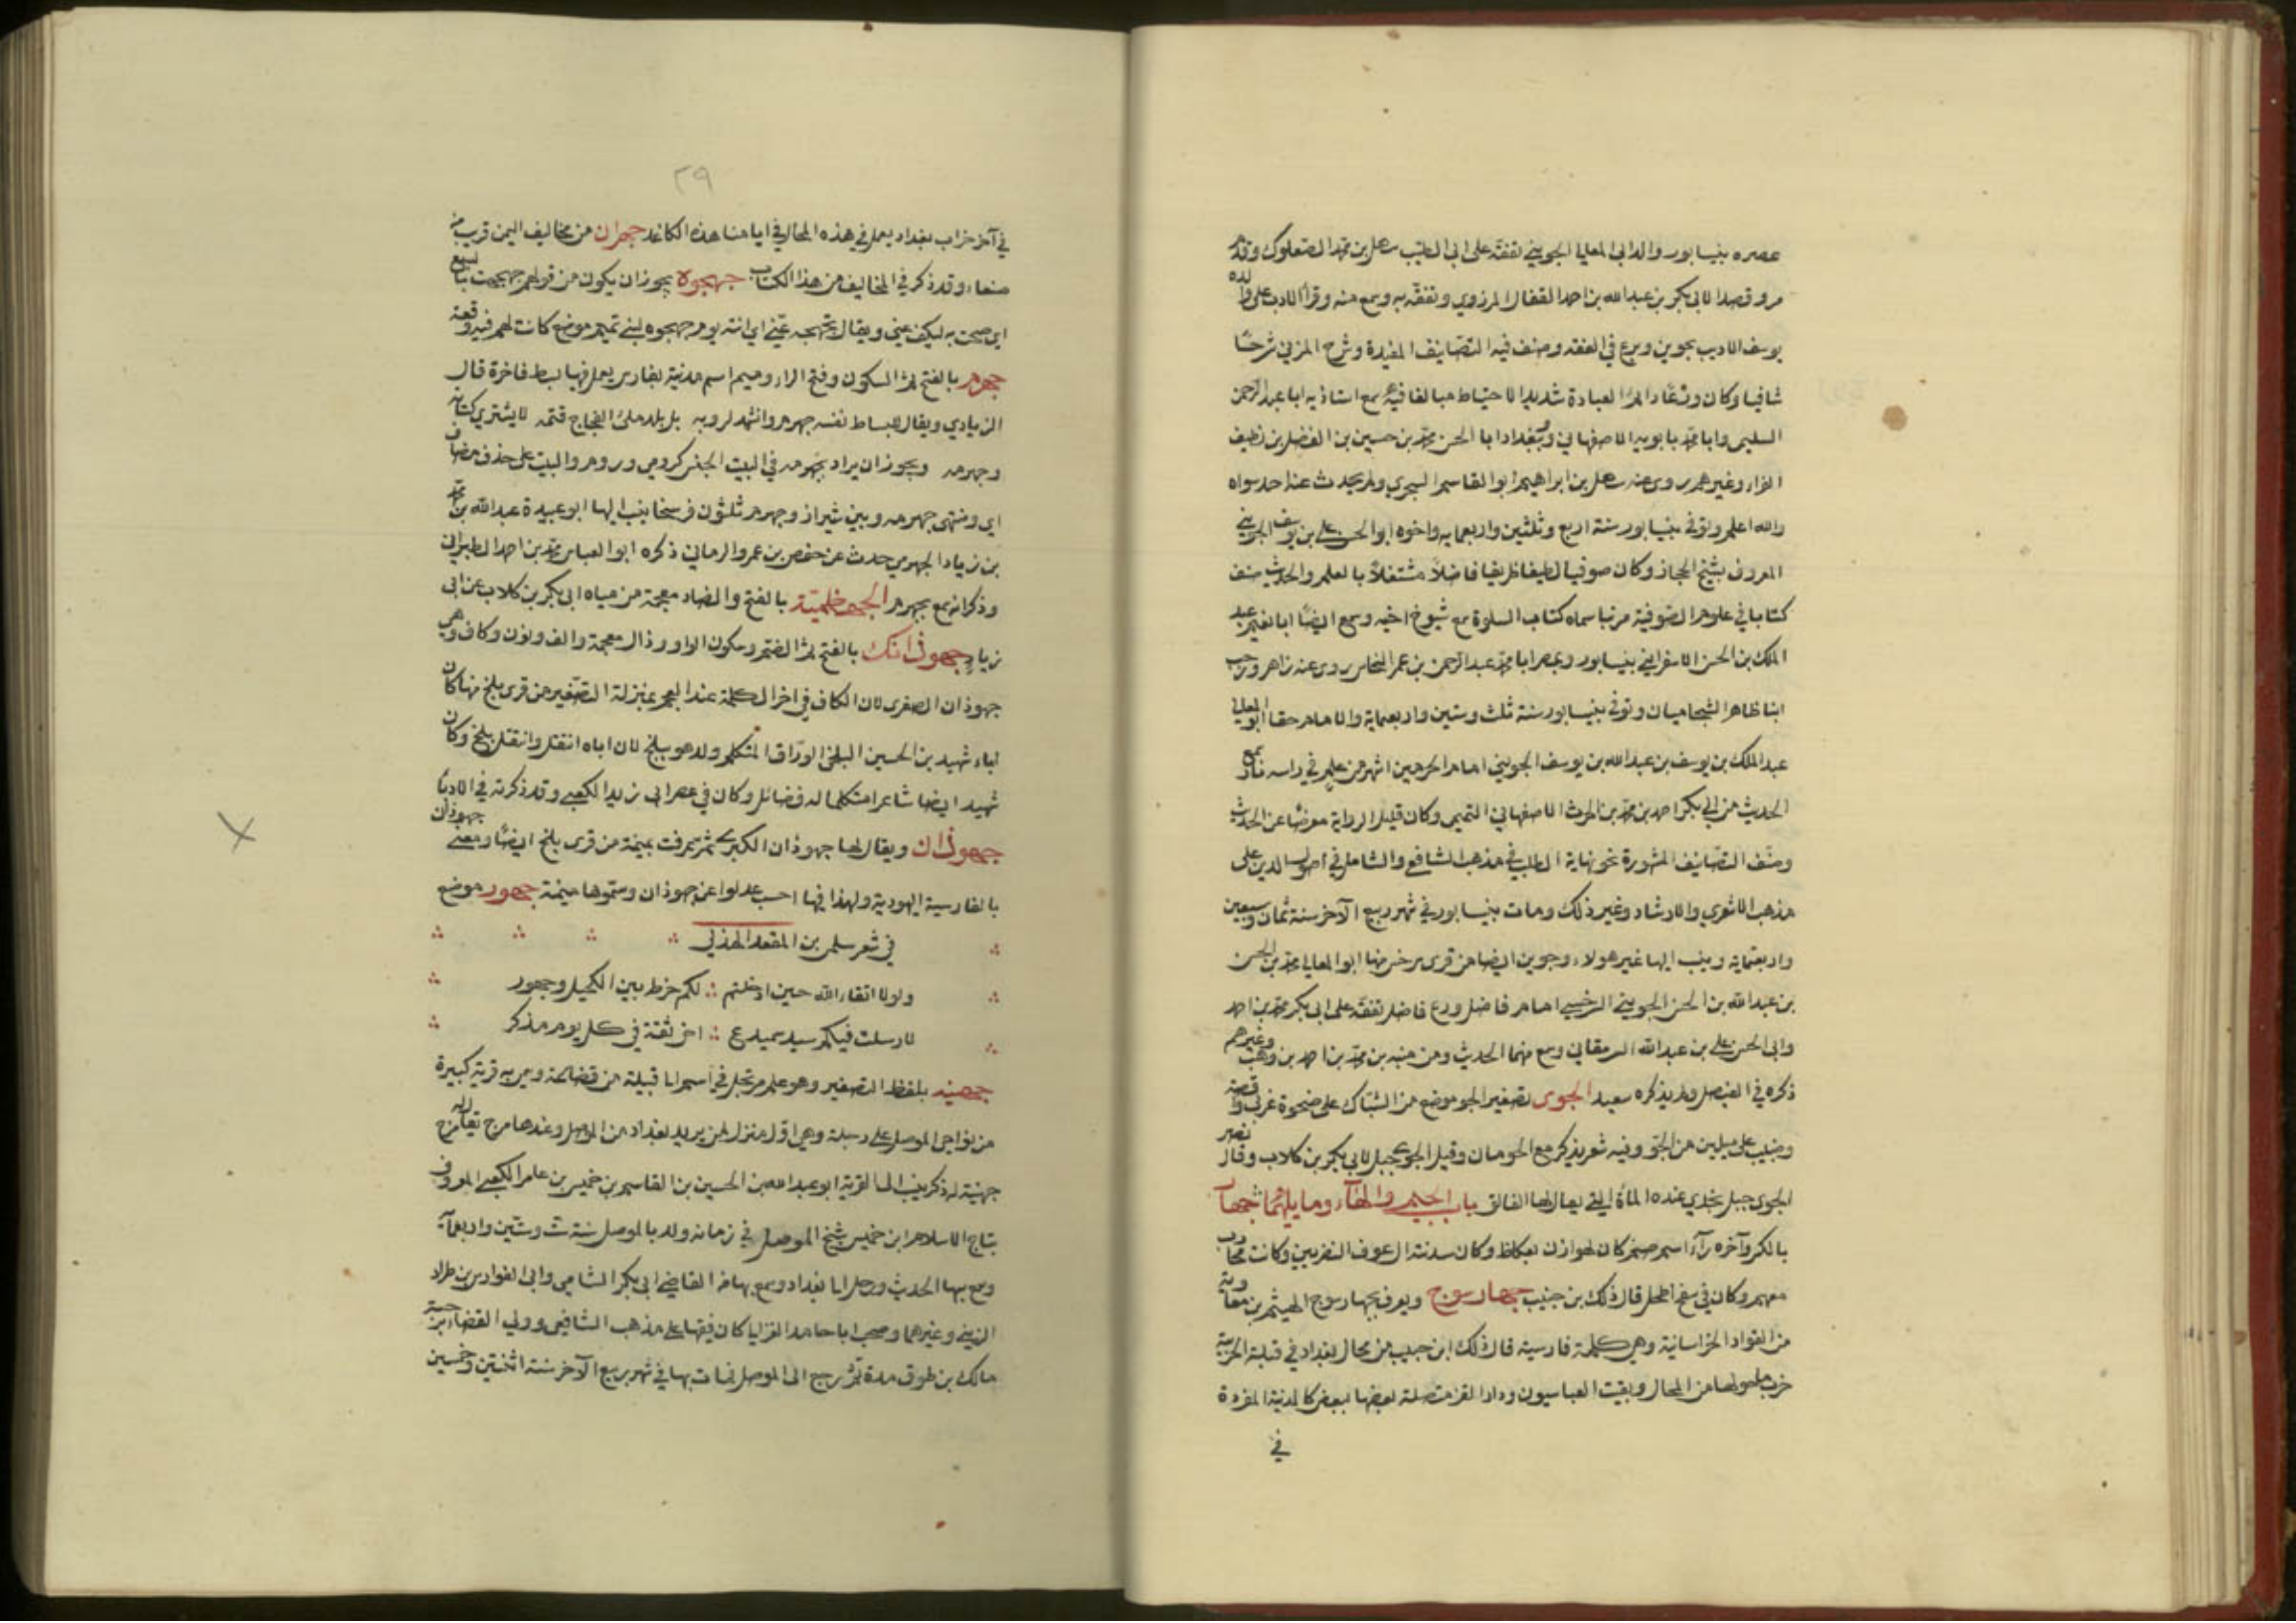 عصره بنيسابور والد ابي المعالي الجويني تفقه على ابي الطيب سهل بن محمد الصعلوك وقدم
مرو قصدا لابي بكر بن عبد الله بن احمد القفال المرزوي وتفقه به وسمع منه وقرأ الادب على والده
يوسف الاديب بجوين وبرع في الفقه وصنف فيه التصانيف المفيدة وشرح المزني شرحًا
شافيا وكان ورعًا دائم العبادة شديد الاحتياط مبالغا فيه سمع استاذيه ابا عبد الرحمن
السلمي وابا محمد بابويه الاصفهاني وببغداد ابا الحسن محمد بن حسين بن الفضل بن نظيف
الفراء وغيرهم روى عنه سهل بن ابراهيم ابو القاسم السجزي ولم يحدث عنه احد سواه
والله اعلم وتوفي بنيسابور سنة اربع وثلثين واربعمايه واخوه ابو الحسن علي بن يوسف الجويني
المعروف بشيخ الحجاز وكان صوفيا لطيفا ظريفا فاضلًا مشتغلًا بالعلم والحديث صنف
كتابا في علوم الصوفية مرتبا سماه كتاب السلوة سمع شيوخ اخيه وسمع ايضًا ابا نعيم عبد
الملك بن الحسن الاسفرايني بنيسابور وبمصر ابا محمد عبد الرحمن بن عمر النحاس روى عنه زاهر ووجيه
ابنا ظاهر الشحاميان وتوفي بنيسابور سنة ثلث وستين واربعماية والامام حقا ابو المعالي
عبد الملك بن يوسف بن عبد الله بن يوسف الجويني امام الحرمين اشهر من علم في راسه نار سمع
الحديث من ابي بكر احمد بن محمد بن الحرث الاصفهاني التميمي وكان قليل الرواية معرضًا عن الحديث
وصنف التصانيف المشهورة نحو نهاية المطلب في مذهب الشافعي والشامل في اصول الدين على
مذهب الاشعري والارشاد وغير ذلك ومات بنيسابور في شهر ربيع الآخر سنة ثمان وسبعين
واربعماية وينسب اليها غير هولاء وجوين ايضا من قرى سرخس منها ابو المعالي محمد بن الحسن
بن عبد الله بن الحسن الجويني السرخسي امام فاضل ورع فاضل تفقه على ابي بكر محمد بن احمد
وابي الحسن علي بن عبد الله السرمقاني وسمع منهما الحديث ومن منبه بن محمد بن احمد بن وهب وغيرهم
ذكره في الفيصل ولم يذكره سعيد الجوى تصغير الجو موضع من الشباك على ضحوة غربي واقصة
وضبيب على ميلين من الجو وفيه شعر يذكر مع الحومان وقيل الجوى جبل لابي بكر بن كلاب وقال نصر
الجوى جبل نجدي عنده الماءة التي يقال لها الفالق باب الجيم والهاء وما يليهما جهار
بالكسر وآخره راء اسم صنم كان لهوازن بعكاظ وكان سدنته ال عوف النضريين وكانت محارب
معهم وكان في سفح اطحل قال ذلك بن حبيب جهار سوج ويعرف بجهار سوج الهيثم بن معاوية
من القواد الخراسانية وهي كلمة فارسية قال ذلك ابن حبيب من محال بغداد في قبلة الحربية
خرب ما حولها من المحال وبقيت العباسيون ودار القز متصلة بعضها ببعض كالمدينة المفردة
في
٢٩
في آخر خراب بغداد يعمل في هذه المحال في ايامنا هذه الكاغد جهران من مخاليف اليمن قريب من
صنعاء وقد ذكر في المخاليف من هذا الكتاب جهجوه يجوز ان يكون من قولهم جهجهت بالسبع
اي صحت به ليكف عني ويقال تجهجه عني اي انته يوم جهجوه لبني تميم موضع كانت لهم فيه وقعة
جهرم بالفتح ثم السكون وفتح الراء وميم اسم مدينة بفارس يعمل فيها بسط فاخرة قال
الزيادي ويقال للبساط نفسه جهرم وانشد لروبه بل بلد ملئ الفجاج قتمه لا يشترى كتانه
وجهرمه ويجوز ان يراد بجهرمه في البيت الجنس كرومي وروم والبيت على حذف مضاف
اي ومنتهى جهرمه وبين شيراز وجهرم ثلثون فرسخا ينسب اليها ابو عبيدة عبد الله بن محمد
بن زياد الجهرمي حدث عن حفص بن عمرو الرماني ذكره ابو العباس محمد بن احمد الطبراني
وذكر انه سمع بجهرم الجهضمية بالفتح والضاد معجمة من مياه ابي بكر بن كلاب عن ابي
زياد جهوذانك بالفتح ثم الضم وسكون الواو وذال معجمة والف ونون وكاف وهي
جهوذان الصغرى لان الكاف في اخر الكلمة عند العجم بمنزلة التصغير من قرى بلخ منها كان
اباء شهيد بن الحسين البلخي الوراق المتكلم ولد هو ببلخ لان اباه انتقل وانتقل ببلخ وكان
شهيد ايضا شاعرا متكلما له فضائل وكان في عصر ابي زيد الكعبي وقد ذكرته في الادبا
جهوذان ويقال لها جهوذان الكبرى ثم عرفت بميمنة من قرى بلخ ايضًا ومعنى جهوذان
بالفارسية اليهودية ولهذا فيما احسب عدلوا عن جهوذان وسموها ميمنة جهور موضع
في شعر سلمى بن المقعد الهذلي
ولولا اتقاء الله حين ادخلتم ∴ لكم ضرط بين الكحيل وجهور
لارسلت فيكم سيد سميدع ∴ اخي ثقة في كل يوم مذكر
جهينه بلفظ التصغير وهو علم مرتجل في اسم ابا قبيلة من قضاعة وسمي به قرية كبيرة
من نواحي الموصل على دجلة وهي اول منزل لمن يريد بغداد من الموصل وعندها مرج يقال له مرج
جهينة له ذكر ينسب الى القرية ابو عبد الله بن الحسين بن القاسم بن خميس بن عامر الكعبي المعروف
بتاج الاسلام ابن خميس شيخ الموصل في زمانه ولد بالموصل سنة ست وستين واربعمآية
وسمع بها الحديث ورحل الى بغداد وسمع بها من القاضي ابي بكر الشامي وابي الفوارس بن طراد
الزينبي وغيرهما وصحب ابا حامد الغزالي كان فقيها على مذهب الشافعي وولي القضاء برحبة
مالك بن طوق مدة ثم رجع الى الموصل فمات بها في شهر ربيع الآخر سنة اثنتين وخمسين